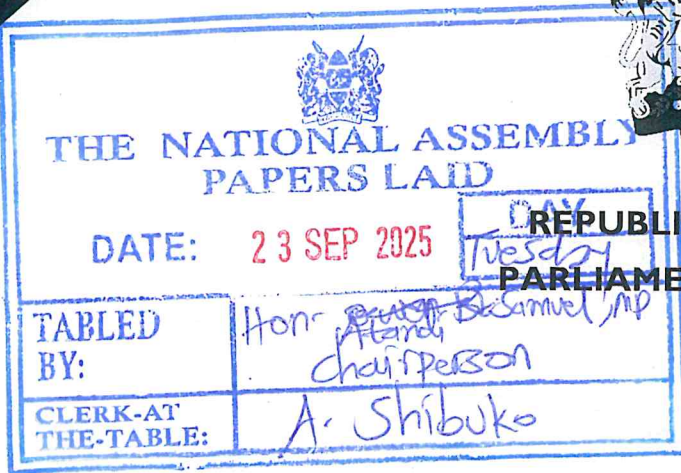 THE NATIONAL ASSEMBLY
PAPERS LAID
DATE: 23 SEP 2025
DAY
Tuesday
REPUBLI
PARLIAME
TABLED BY:
Hon. Samuel, MP
Atandi
Chairperson
CLERK-AT THE-TABLE:
A. Shibuko